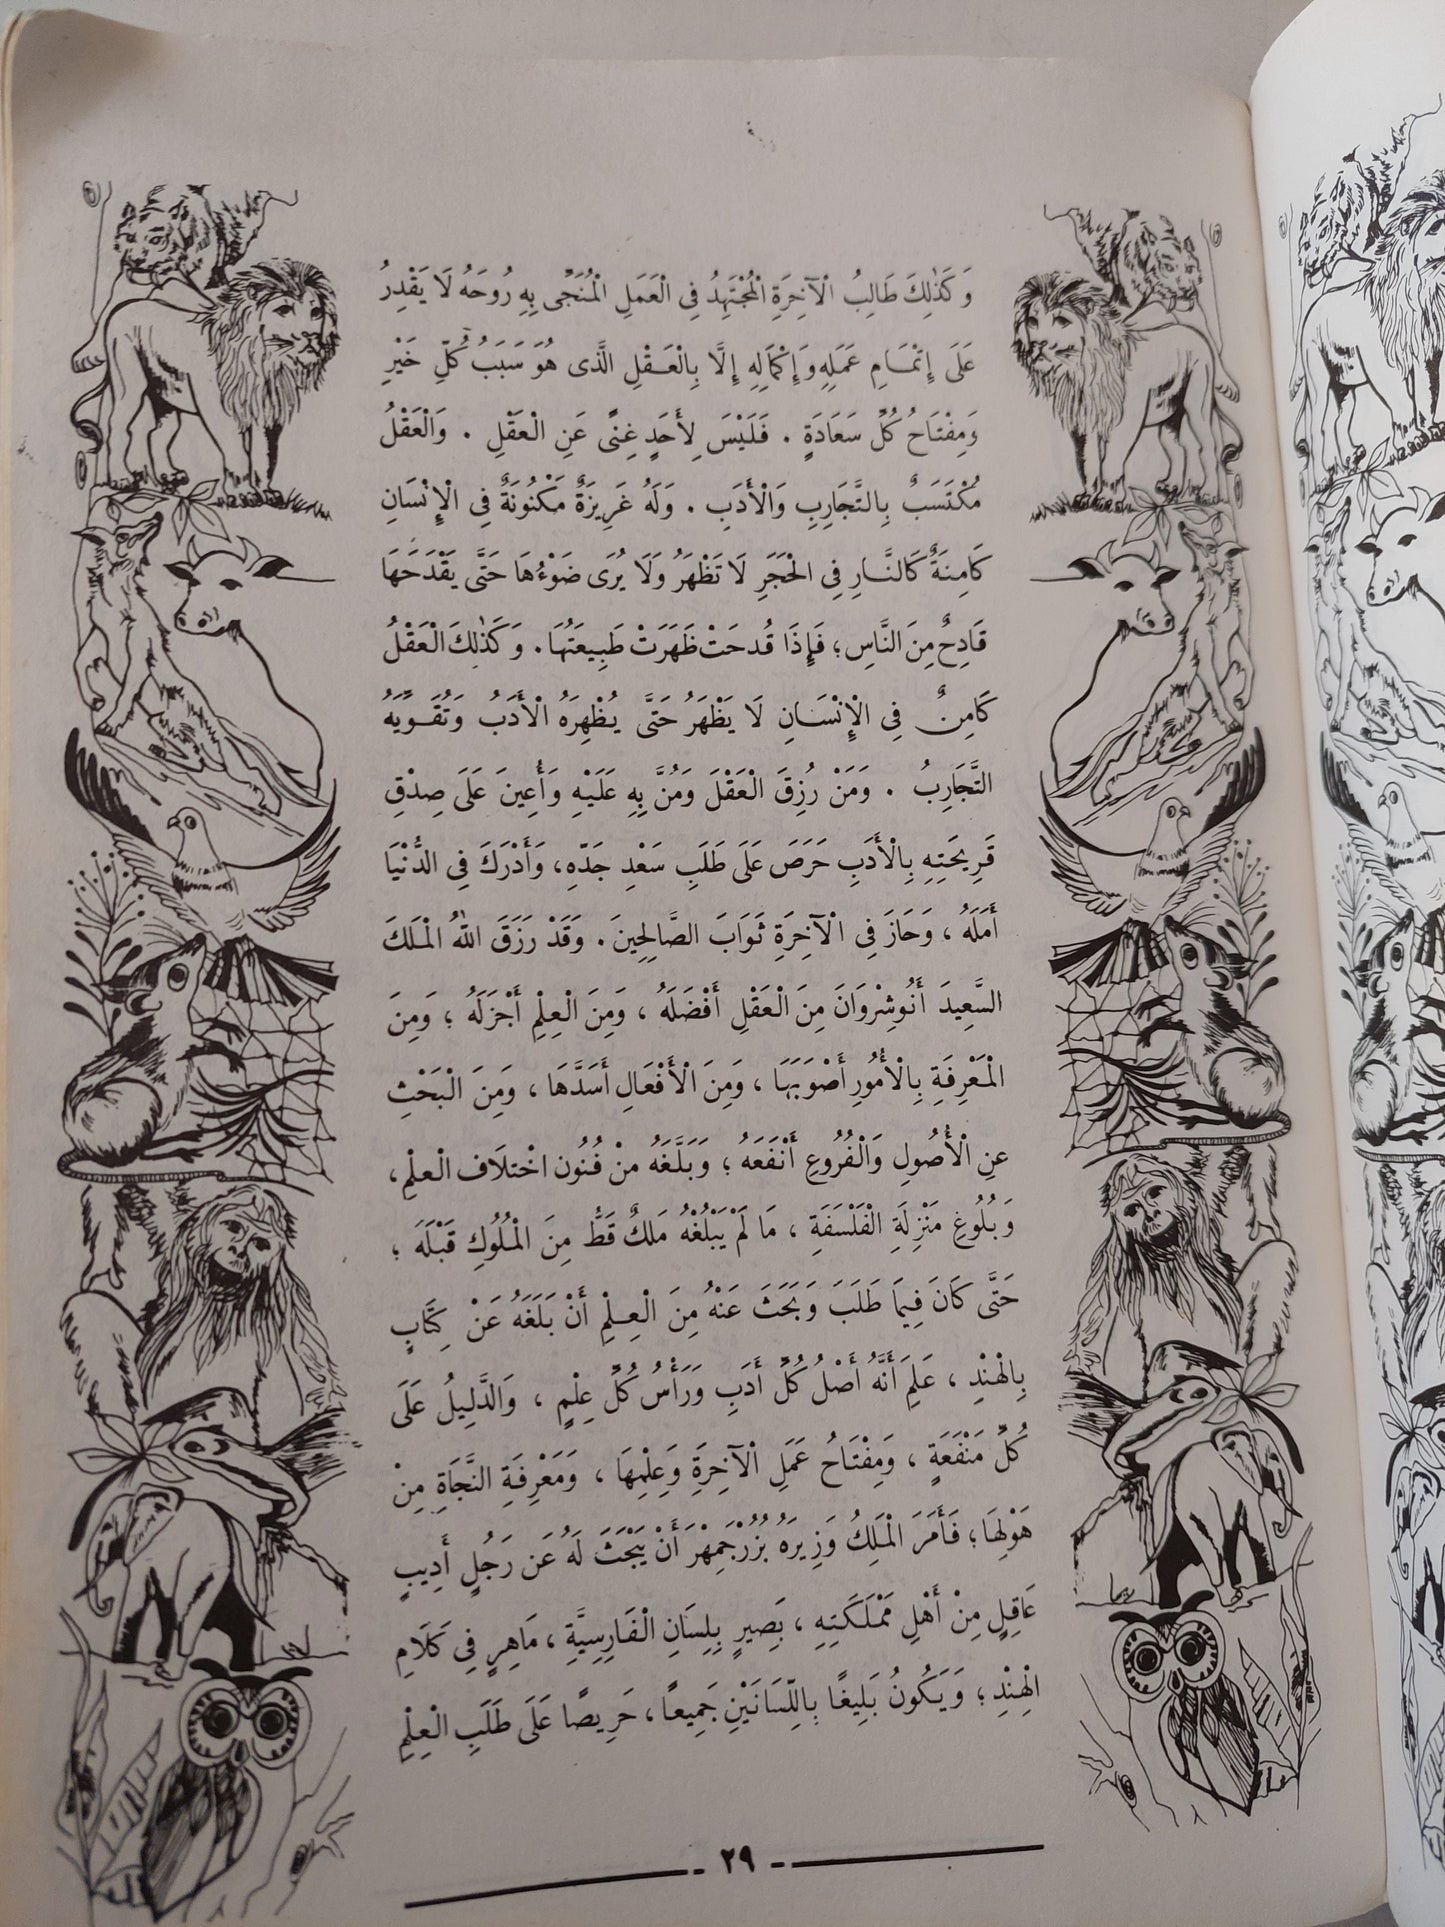 وَكَذٰلِكَ طَالِبُ الْآخِرَةِ الْمُجْتَهِدُ فِى الْعَمَلِ الْمُنَجِّى بِهِ رُوحَهُ لَا يَقْدِرُ
عَلَى إِتْمَامِ عَمَلِهِ وَإِكْمَالِهِ إِلَّا بِالْعَقْلِ الَّذى هُوَ سَبَبُ كُلِّ خَيْرٍ
وَمِفْتَاحُ كُلِّ سَعَادَةٍ . فَلَيْسَ لِأَحَدٍ غِنًى عَنِ الْعَقْلِ . وَالْعَقْلُ
مُكْتَسَبٌ بِالتَّجَارِبِ وَالْأَدَبِ . وَلَهُ غَرِيزَةٌ مَكْنُونَةٌ فِى الْإِنْسَانِ
كَامِنَةٌ كَالنَّارِ فِى الْحَجَرِ لَا تَظْهَرُ وَلَا يُرَى ضَوْءُهَا حَتَّى يَقْدَحَهَا
قَادِحٌ مِنَ النَّاسِ ؛ فَإِذَا قُدحَتْ ظَهَرَتْ طَبِيعَتُهَا . وَكَذٰلِكَ الْعَقْلُ
كَامِنٌ فِى الْإِنْسَانِ لَا يَظْهَرُ حَتَّى يُظْهِرَهُ الْأَدَبُ وَتُقَوِّيَهُ
التَّجَارِبُ . وَمَنْ رُزِقَ الْعَقْلَ وَمُنَّ بِهِ عَلَيْهِ وَأُعِينَ عَلَى صِدْقِ
قَرِيحَتِهِ بِالْأَدَبِ حَرَصَ عَلَى طَلَبِ سَعْدِ جَدِّهِ، وَأَدْرَكَ فِى الدُّنْيَا
أَمَلَهُ ، وَحَازَ فِى الْآخِرَةِ ثَوَابَ الصَّالِحِينَ . وَقَدْ رَزَقَ اللهُ الْمَلَكَ
السَّعِيدَ أَنُوشِرْوَانَ مِنَ الْعَقْلِ أَفْضَلَهُ ، وَمِنَ الْعِلْمِ أَجْزَلَهُ ؛ وَمِنَ
الْمَعْرِفَةِ بِالْأُمُورِ أَصْوَبَهَا ، وَمِنَ الْأَفْعَالِ أَسَدَّهَا ، وَمِنَ الْبَحْثِ
عنِ الْأُصُولِ وَالْفُرُوعِ أَنْفَعَهُ ؛ وَبَلَّغَهُ منْ فُنُون اخْتلَاف الْعلْمِ،
وَبُلُوغِ مَنْزِلَةِ الْفَلْسَفَةِ ، مَا لَمْ يَبْلُغْهُ مَلكٌ قَطُّ مِنَ الْمُلُوكِ قَبْلَهُ ؛
حَتَّى كَانَ فِيمَا طَلَبَ وَبَحَثَ عَنْهُ مِنَ الْعِلْمِ أَنْ بَلَغَهُ عَنْ كِتَابٍ
بِالْهنْدِ ، عَلِمَ أَنَّهُ أَصْلُ كُلِّ أَدَبٍ وَرَأْسُ كُلِّ عِلْمٍ ، وَالدَّلِيلُ عَلَى
كُلِّ مَنْفَعَةٍ ، وَمِفْتَاحُ عَمَلِ الْآخِرَةِ وَعِلْمِهَا ، وَمَعْرِفَةِ النَّجَاةِ مِنْ
هَوْلِهَا ؛ فَأَمَرَ الْمَلِكُ وَزِيرَهُ بُزُرْجَمِهْرَ أَنْ يَبْحَثَ لَهُ عَن رَجُلٍ أَدِيبٍ
عَاقِلٍ مِنْ أَهْلِ مَمْلَكَتِهِ ، بَصِيرٍ بِلِسَانِ الْفَارِسِيَّةِ ، مَاهِرٍ فِى كَلَامِ
الْهِنْدِ ؛ وَيَكُونُ بَلِيغًا بِاللِّسَانَيْنِ جَمِيعًا ، حَرِيصًا عَلَى طَلَبِ الْعِلْمِ
- ٢٩ -